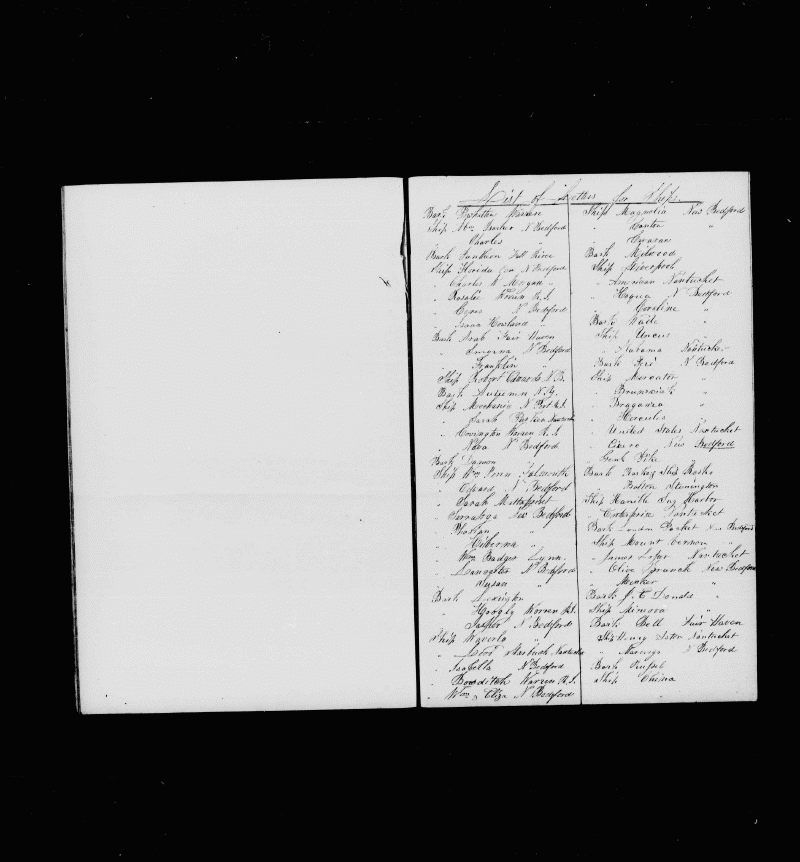 List of Letters for Ships
Bark Warren
Ship Wm N Bedford
Charles "
Bark Pantheon Fall River
Ship Florida N Bedford
" Charles W Morgan "
" Rosalie Warren R.I.
" Cyrus N Bedford
" Isaac Howland "
Bark Arab Fair Haven
" N Bedford
" Franklin "
Ship Robert Edwards N.B.
Bark Autumn N.Y.
Ship Mechanic N Port R.I.
" Sarah
" Covington Warren R.I.
" N Bedford
Bark Damon
Ship Wm Penn Falmouth
" N Bedford
" Sarah Mattapoiset
" Saratoga New Bedford
" Phocion "
" Hiberna "
" Wm Badger Lynn
" Lancaster N Bedford
" Susan "
Bark Lexington
" Hoogly Warren R.I.
" Jasper N Bedford
Ship Waverly "
" Starbuck Nantucket
" Isabella N Bedford
" Bowditch Warren R.I.
" Wm & Eliza N Bedford
Ship Magnolia New Bedford
" Canton "
" Caravan
Bark Milwood
Ship Liverpool
" American Nantucket
" Huqua N Bedford
" Caroline "
Bark Wade "
Ship Uncas "
" Alabama Nantucket
Bark Peri N Bedford
Ship Mercator "
" Brunswick "
" Braganza "
" Hercules "
" United States Nantucket
" Cicero New Bedford
" Genl Pike
Bark Ship
" Boston Stonington
Ship Hamilton Sag Harbor
" Enterprise Nantucket
Bark London Packet New Bedford
Ship Mount Vernon "
" James Loper Nantucket
" Olive Branch New Bedford
" "
Bark "
Ship Minerva "
Bark Bell Fair Haven
Ship Henry Astor Nantucket
" N Bedford
Bark
Ship China